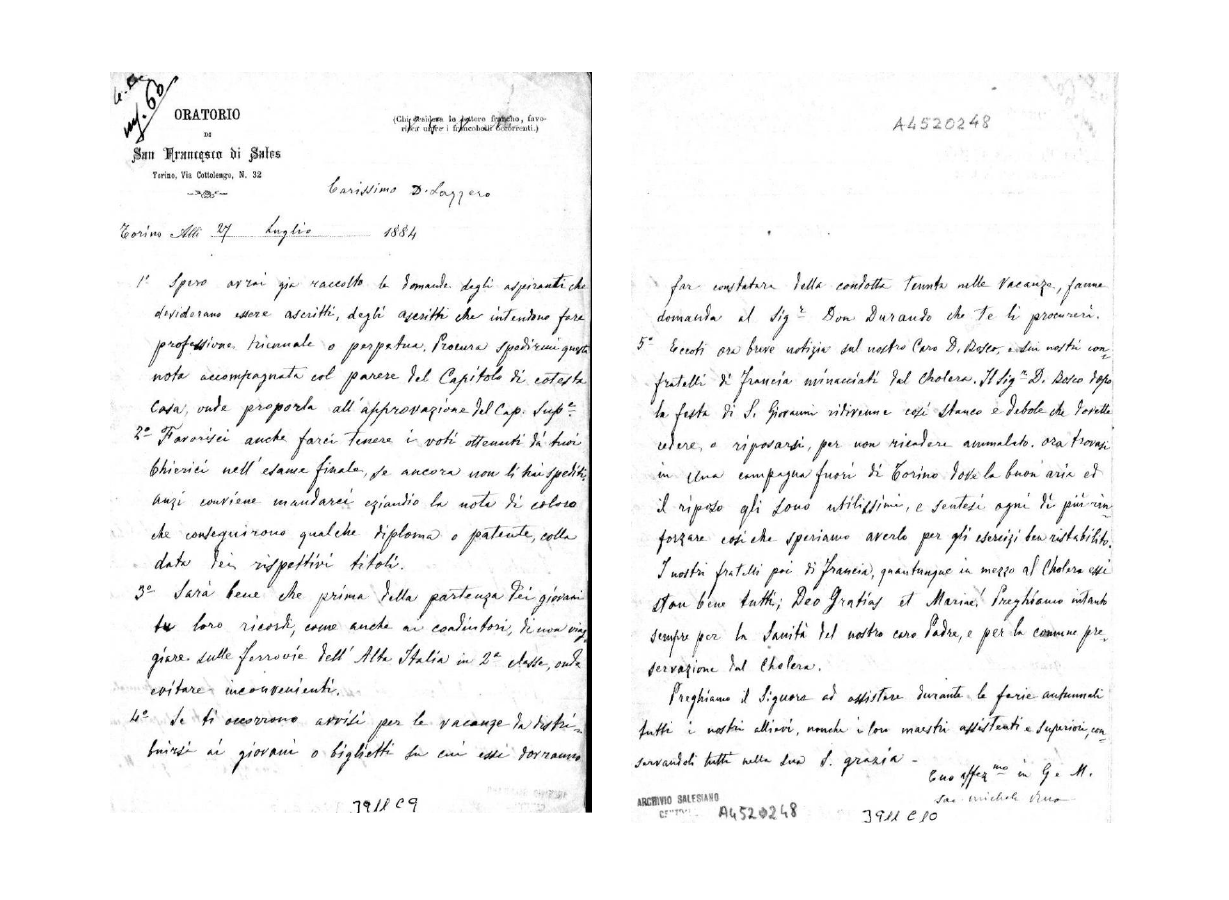 ORATORIO
DI
San Francesco di Sales
Torino, Via Cottolengo, N. 32
(Chi desidera lo lettere franche, favo-
risca unire i francobolli occorrenti.)
Carissimo D. Lazzero
Torino Alli 27 Luglio 1884
1° Spero avrai già raccolto le domande degli aspiranti che
desiderano essere ascritti, degli ascritti che intendono fare
professione triennale o perpetua. Procura spedirmi questa
nota accompagnata col parere del Capitolo di cotesta
Casa, onde proporla all'approvazione del Cap. Sup.e
2° Favorisci anche farci tenere i voti ottenuti da tuoi
Chierici nell'esame finale, se ancora non li hai spediti;
anzi conviene mandarci eziandio la nota di coloro
che conseguirono qualche diploma o patente, colla
data dei rispettivi titoli.
3° Sarà bene che prima della partenza dei giovani
tu loro ricordi, come anche ai coadiutori, di non viag-
giare sulle ferrovie dell'Alta Italia in 2a classe, onde
evitare inconvenienti.
4° Se ti occorrono avvisi per le vacanze da distri-
buirsi ai giovani o biglietti su cui essi dovranno
3911 C9
A4520248
far constatare della condotta tenuta nelle vacanze, fanne
domanda al Sig.r Don Durando che te li procurerà.
5° Eccoti ora breve notizia sul nostro Caro D. Bosco, e sui nostri con-
fratelli di Francia minacciati dal Cholera. Il Sig.r D. Bosco dopo
la festa di S. Giovanni ridivenne così stanco e debole che dovette
cedere, e riposarsi, per non ricadere ammalato. ora trovasi
in una campagna fuori di Torino dove la buon'aria ed
il riposo gli sono utilissimi, e sentesi ogni dì più rin-
forzare così che speriamo averlo per gli esercizi ben ristabilito.
I nostri fratelli poi di Francia, quantunque in mezzo al Cholera essi
stan bene tutti; Deo Gratias et Mariae! Preghiamo intanto
sempre per la Sanità del nostro caro Padre, e per la comune pre-
servazione dal Cholera.
Preghiamo il Signore ad assistere durante le ferie autunnali
tutti i nostri allievi, nonchè i loro maestri assistenti e Superiori, con-
servandoli tutti nella sua S. grazia -
Tuo affez.mo in G. e M.
Sac. Michele Rua
ARCHIVIO SALESIANO
A4520248
3911 C10